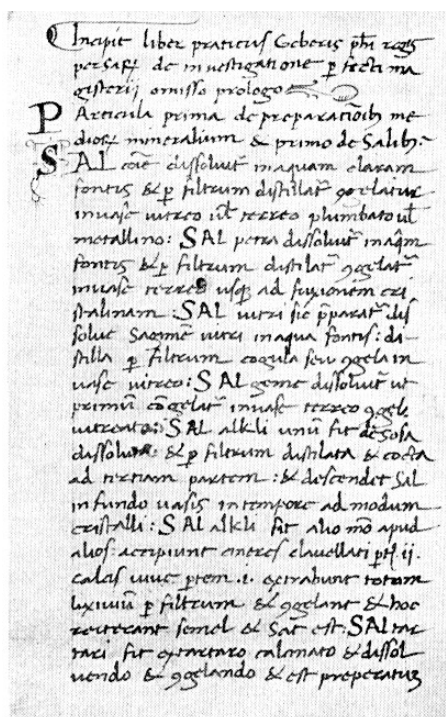 Incipit liber praticus Geberis phi regꝭ
persaꝝ de inuestigatione ꝑfecti ma
gisterij omisso prologo
PArticula prima de preparatiōibꝫ me
dioꝝ mineralium & primo de Salibꝫ:
SAL coē dissoluit᷑ in aquam claram
fontis & ꝑ filtrum distillat᷑ ꝯgelatur
in uase uitreo uł terreo plumbato uł
metallino: SAL petra dissoluit᷑ in aq̄m
fontis & ꝑ filtrum distilat᷑ ꝯgelat᷑
in uase terreo usqꝫ ad fuxionem cri
stalinam: SAL uitri sic p̄parat᷑ dis
solue Sagimē uitri in aqua fontis: di-
stilla ꝑ filtrum cogula seu ꝯgela in
uase uitreo: SAL geme dissoluit᷑ ut
primum cōgelat᷑ in uase terreo ꝯgel.
uitreato: SAL alkli unū fit de sosa
dissoluta & ꝑ filtrum distilata & cocta
ad tertiam partem: & descendet Sal
in fundo uasis in tempore ad modum
cristalli: SAL alkli fit alio mō apud
alios: accipiunt cineres clauellati ptꝭ .ij.
calcis uiue ꝑtem .i. extrahunt totum
lixiuiū ꝑ filtrum & ꝯgelant & hoc
reiterant semel & Sat est: SAL tar
tari fit ex tartaro calcinato & dissol
uendo & ꝯgelando & est preperatuꝫ